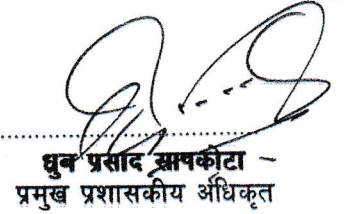 ध्रुब प्रसाद सापकोटा
प्रमुख प्रशासकीय अधिकृत